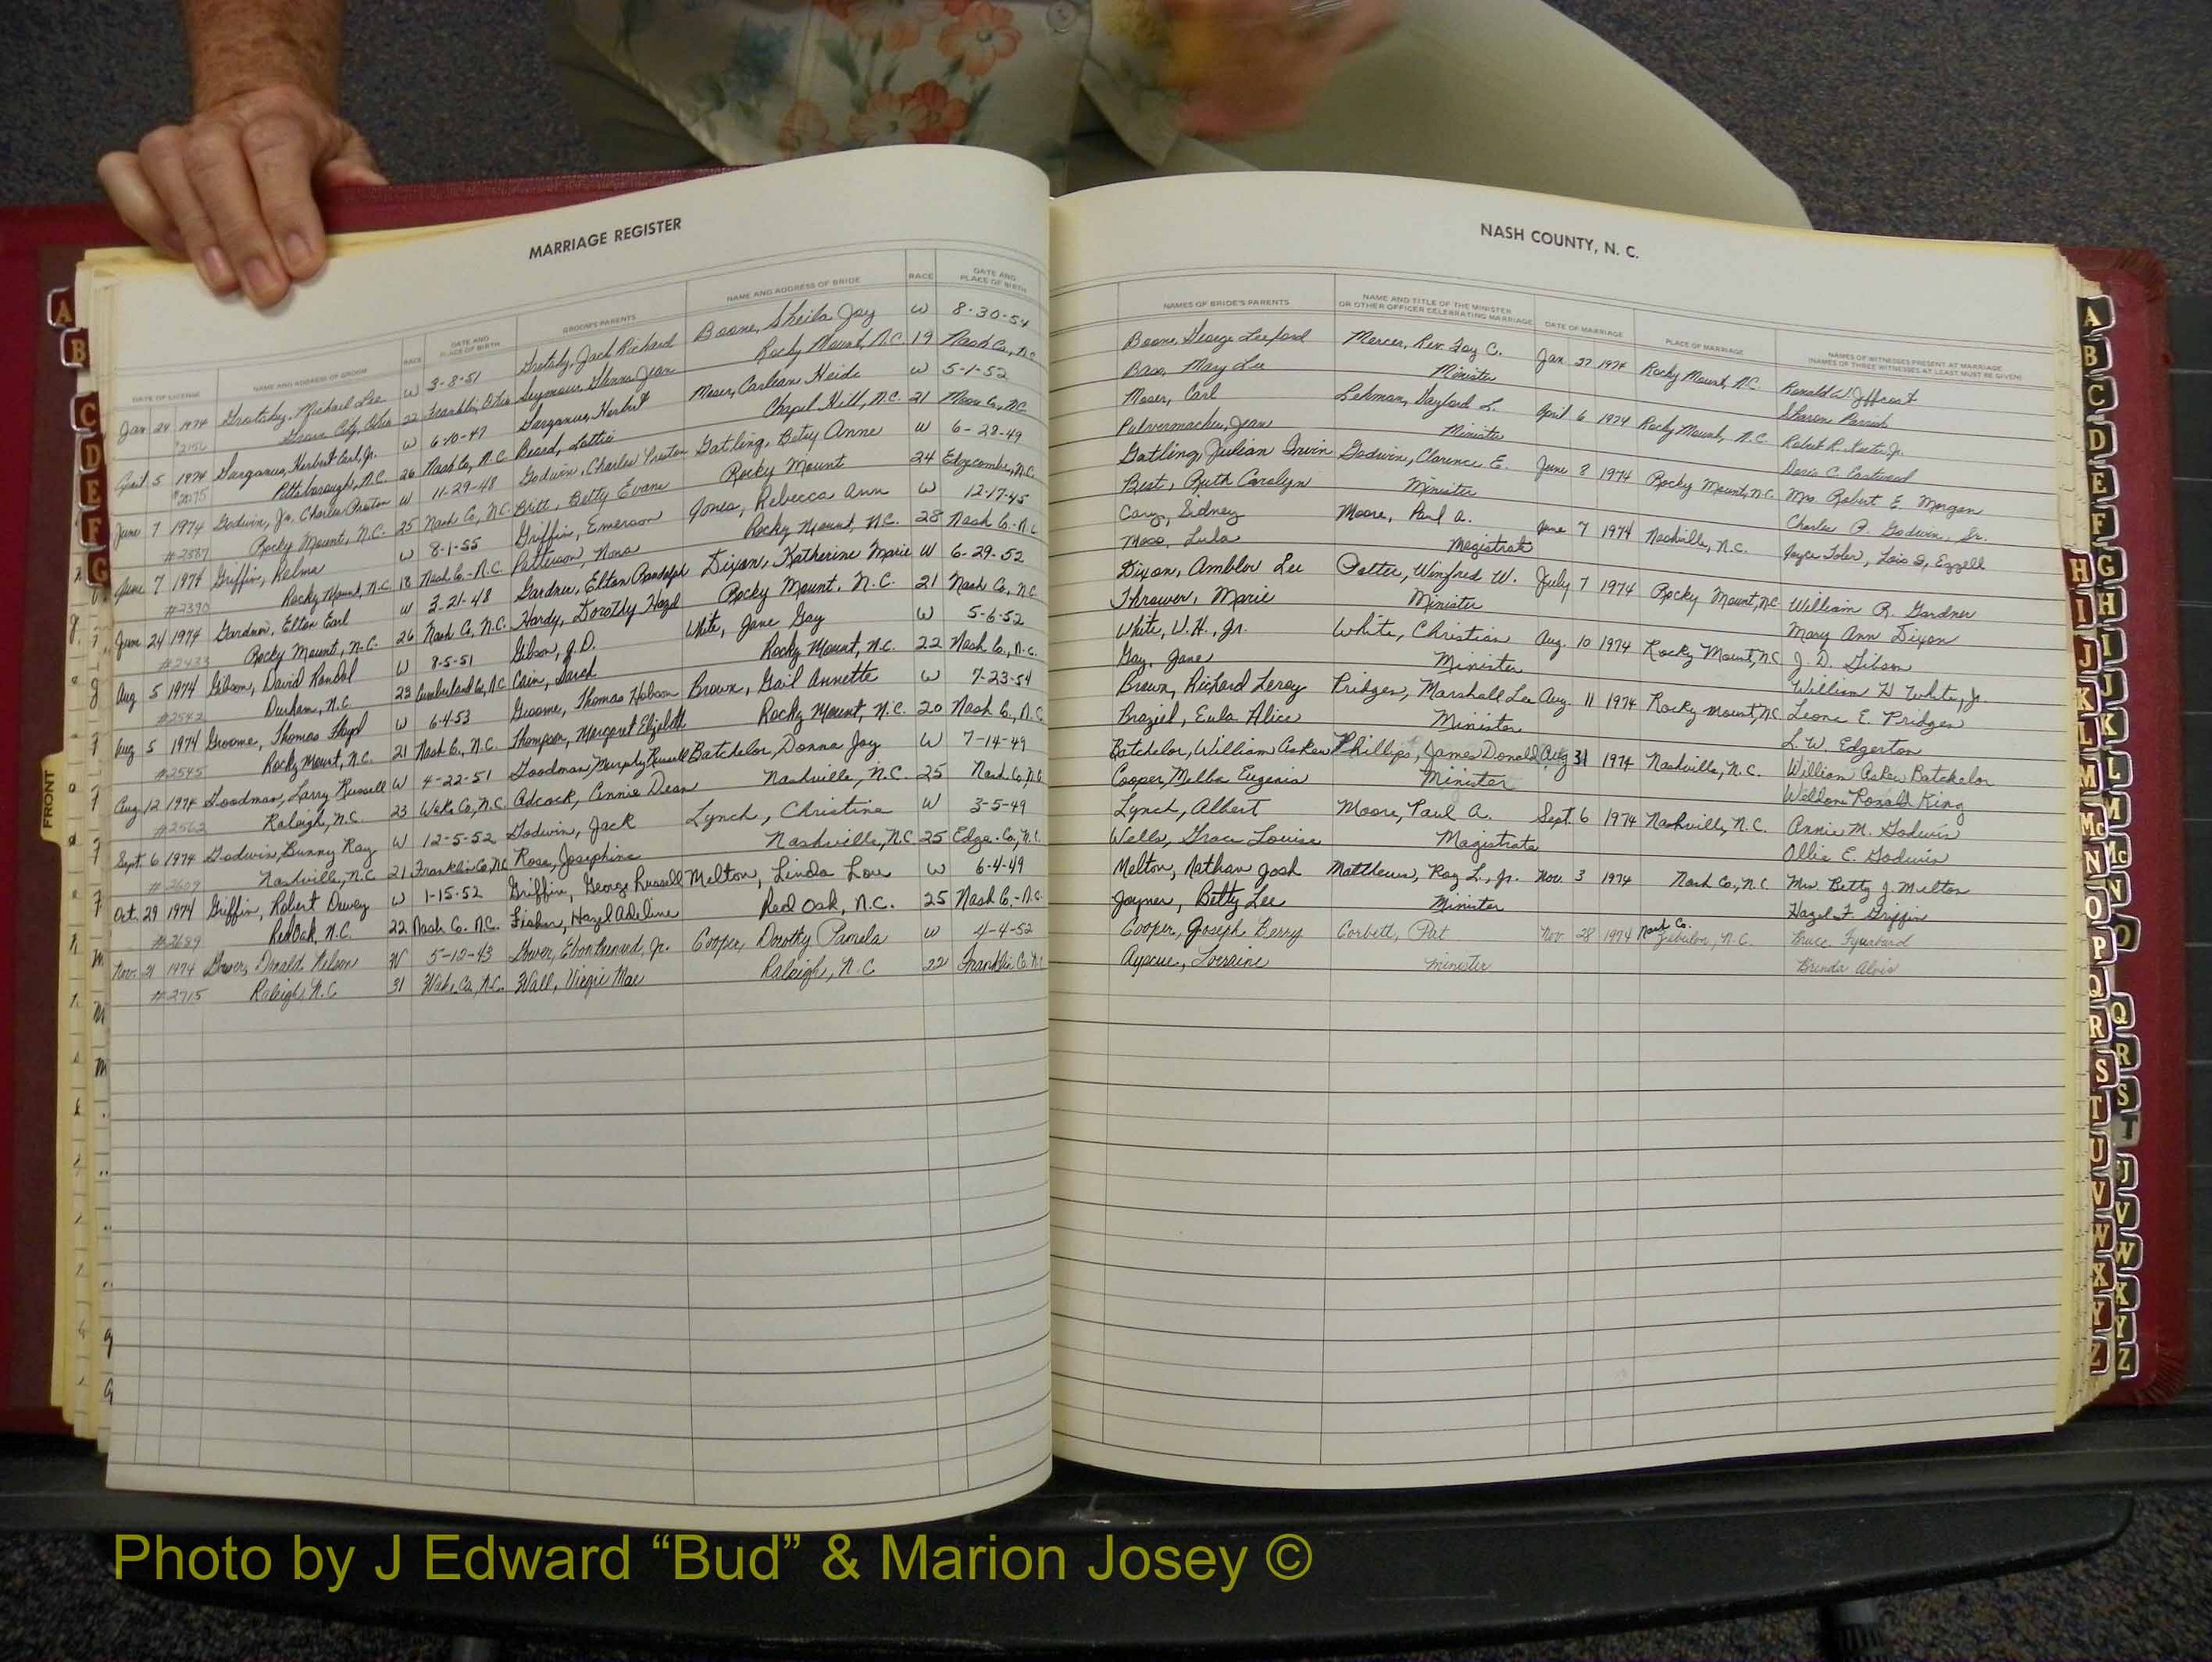 MARRIAGE REGISTER
DATE OF LICENSE NAME AND ADDRESS OF GROOM RACE DATE AND PLACE OF BIRTH GROOM'S PARENTS NAME AND ADDRESS OF BRIDE RACE DATE AND PLACE OF BIRTH
Jan 24 1974 Michael Lee W 3-8-51 Jack Richard Boone, Sheila Joy W 8-30-54
Grove City, Ohio 22 Franklin, Ohio Seymour, Glenna Jean Rocky Mount, N.C. 19 Nash Co., N.C.
April 5 1974 Garganus, Herbert Earl, Jr. W 6-10-47 Garganus, Herbert Moser, Carleen Heide W 5-1-52
Pittsborough, N.C. 26 Nash Co, N.C. Beard, Lottie Chapel Hill, N.C. 21 Moore Co., N.C.
June 7 1974 Godwin, Jr. Charles Preston W 11-29-48 Godwin, Charles Preston Gatling, Betsy Anne W 6-28-49
#2387 Rocky Mount, N.C. 25 Nash Co, N.C. Britt, Betty Evans Rocky Mount 24 Edgecombe, N.C.
June 7 1974 Griffin, Relma W 8-1-55 Griffin, Emerson Jones, Rebecca Ann W 12-17-45
#2390 Rocky Mount, N.C. 18 Nash Co.-N.C. Patterson, Nona Rocky Mount, N.C. 28 Nash Co.-N.C.
June 24 1974 Gardner, Elton Earl W 3-21-48 Gardner, Elton Randolph Dixon, Katherine Marie W 6-29-52
#2433 Rocky Mount, N.C. 26 Nash Co, N.C. Hardy, Dorothy Hazel Rocky Mount, N.C. 21 Nash Co, N.C.
Aug 5 1974 Gibson, David Randal W 8-5-51 Gibson, J.D. White, Jane Gay W 5-6-52
#2542 Durham, N.C. 23 Cumberland Co, N.C. Cain, Sarah Rocky Mount, N.C. 22 Nash Co., N.C.
Aug 5 1974 Groome, Thomas Floyd W 6-4-53 Groome, Thomas Hobson Brown, Gail Annette W 7-23-54
#2545 Rocky Mount, N.C. 21 Nash Co., N.C. Thompson, Margaret Elizabeth Rocky Mount, N.C. 20 Nash Co., N.C.
Aug 12 1974 Goodman, Larry Russell W 4-22-51 Goodman, Murphy Russell Batchelor, Donna Joy W 7-14-49
#2562 Raleigh, N.C. 23 Wake Co, N.C. Adcock, Annie Dean Nashville, N.C. 25 Nash Co, N.C.
Sept. 6 1974 Godwin, Bunny Ray W 12-5-52 Godwin, Jack Lynch, Christine W 3-5-49
#2609 Nashville, N.C. 21 Franklin Co, N.C. Rose, Josephine Nashville, N.C. 25 Edge. Co, N.C.
Oct. 29 1974 Griffin, Robert Dewey W 1-15-52 Griffin, George Russell Melton, Linda Lou W 6-4-49
#2689 Red Oak, N.C. 22 Nash Co. N.C. Fisher, Hazel Adeline Red Oak, N.C. 25 Nash Co.-N.C.
Nov. 21 1974 Donald Nelson W 5-12-43 Jr. Cooper, Dorothy Pamela W 4-4-52
#2715 Raleigh, N.C. 31 Wake Co, N.C. Wall, Virgie Mae Raleigh, N.C. 22 Franklin Co. N.C.
NASH COUNTY, N. C.
NAMES OF BRIDE'S PARENTS NAME AND TITLE OF THE MINISTER OR OTHER OFFICER CELEBRATING MARRIAGE DATE OF MARRIAGE PLACE OF MARRIAGE NAMES OF WITNESSES PRESENT AT MARRIAGE (NAMES OF THREE WITNESSES AT LEAST MUST BE GIVEN)
Boone, George Mercer, Rev. Foy C. Jan 27 1974 Rocky Mount, N.C. Ronald W.
Bass, Mary Lee Minister Sharon Parrish
Moser, Carl Lehman, Gaylord L. April 6 1974 Rocky Mount, N.C. Robert R. Jr.
Pulvermacher, Jean Minister Doris C. Eastwood
Gatling, Julian Irvin Godwin, Clarence E. June 8 1974 Rocky Mount, N.C. Mrs. Robert E. Morgan
Best, Ruth Carolyn Minister Charles P. Godwin, Sr.
Cary, Sidney Moore, Paul A. June 7 1974 Nashville, N.C. Joyce Toler, Lois D. Ezzell
Moss, Lula Magistrate
Dixon, Ambler Lee Potter, Winfred W. July 7 1974 Rocky Mount, N.C. William R. Gardner
Thrower, Marie Minister Mary Ann Dixon
White, W.H., Jr. White, Christian Aug. 10 1974 Rocky Mount, N.C. J. D. Gibson
Gay, Jane Minister William H White, Jr
Brown, Richard Leroy Pridgen, Marshall Lee Aug. 11 1974 Rocky Mount, N.C. Leone E. Pridgen
Braziel, Eula Alice Minister L. W. Edgerton
Batchelor, William Askew Phillips, James Donald Aug 31 1974 Nashville, N.C. William Askew Batchelor
Cooper, Melba Eugenia Minister Weldon Ronald King
Lynch, Albert Moore, Paul A. Sept. 6 1974 Nashville, N.C. Annie M. Godwin
Wells, Grace Louise Magistrate Ollie E. Godwin
Melton, Nathan Josh Matthews, Ray L., Jr. Nov. 3 1974 Nash Co., N.C. Mrs. Betty J. Melton
Joyner, Betty Lee Minister Hazel F. Griffin
Cooper, Joseph Berry Corbett, Pat Nov. 28 1974 Nash Co. Zebulon, N.C. Bruce
Ayscue, Lorraine Minister Brenda
FRONT
A
B
C
D
E
F
G
A
B
C
D
E
F
G
H
I
J
K
L
M
Mc
N
O
P
Q
R
S
T
U
V
W
X
Y
Z
H
I
J
K
L
M
Mc
N
O
Q
R
S
T
U
V
W
X
Y
Z
Photo by J Edward “Bud” & Marion Josey ©